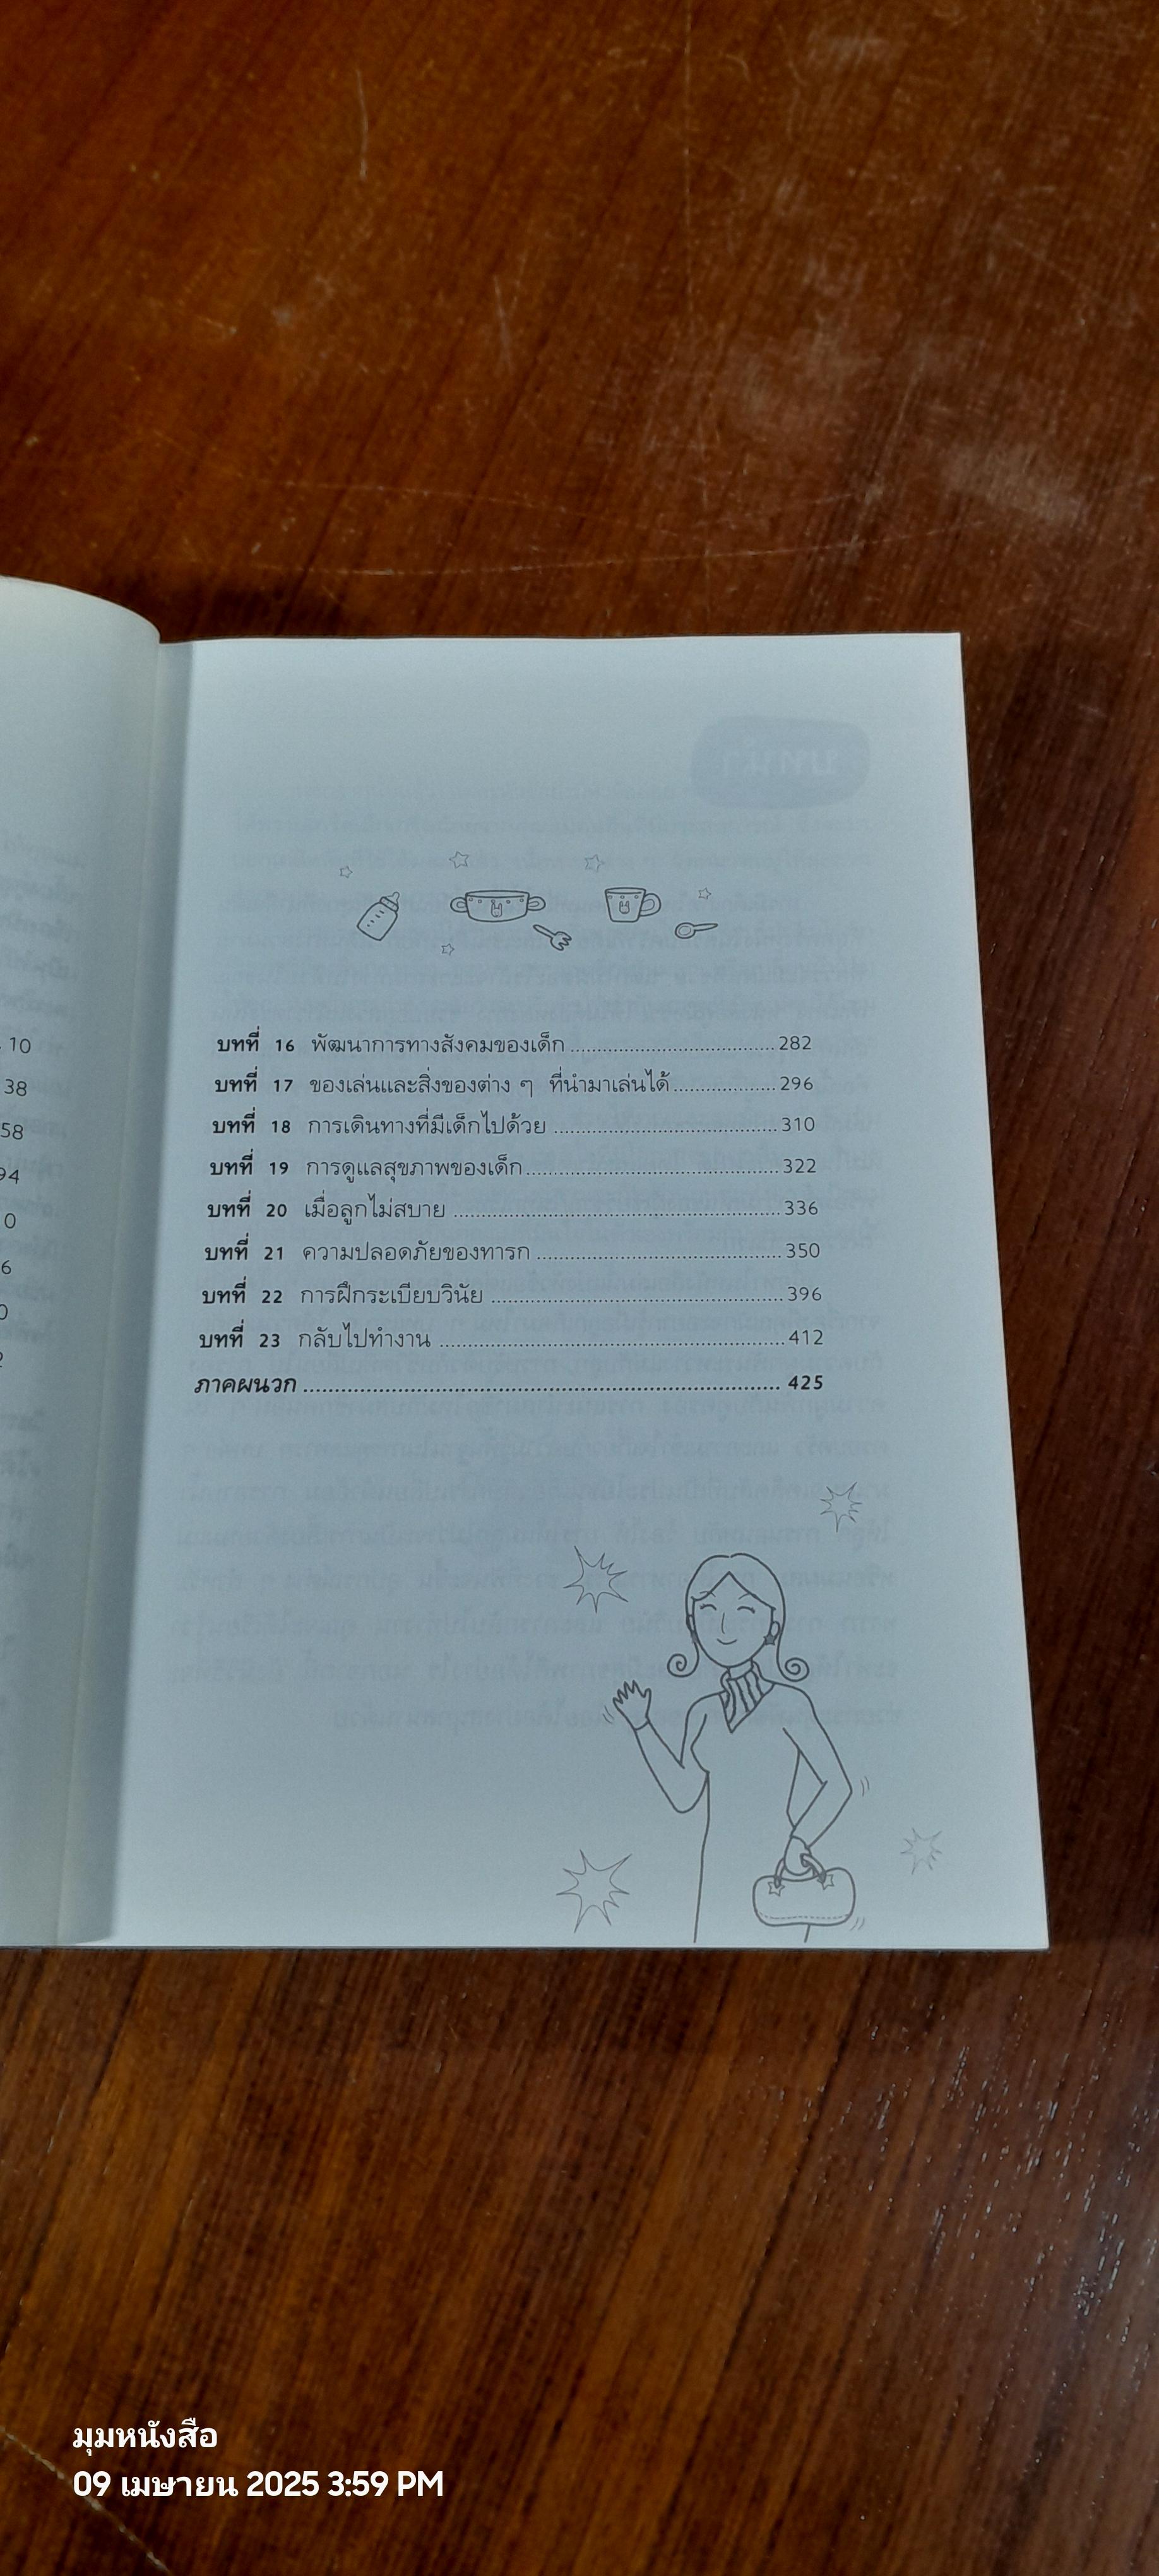 10
38
58
94
0
6
0
2
บทที่ 16 พัฒนาการทางสังคมของเด็ก 282
บทที่ 17 ของเล่นและสิ่งของต่าง ๆ ที่นำมาเล่นได้ 296
บทที่ 18 การเดินทางที่มีเด็กไปด้วย 310
บทที่ 19 การดูแลสุขภาพของเด็ก 322
บทที่ 20 เมื่อลูกไม่สบาย 336
บทที่ 21 ความปลอดภัยของทารก 350
บทที่ 22 การฝึกระเบียบวินัย 396
บทที่ 23 กลับไปทำงาน 412
ภาคผนวก 425
มุมหนังสือ
09 เมษายน 2025 3:59 PM